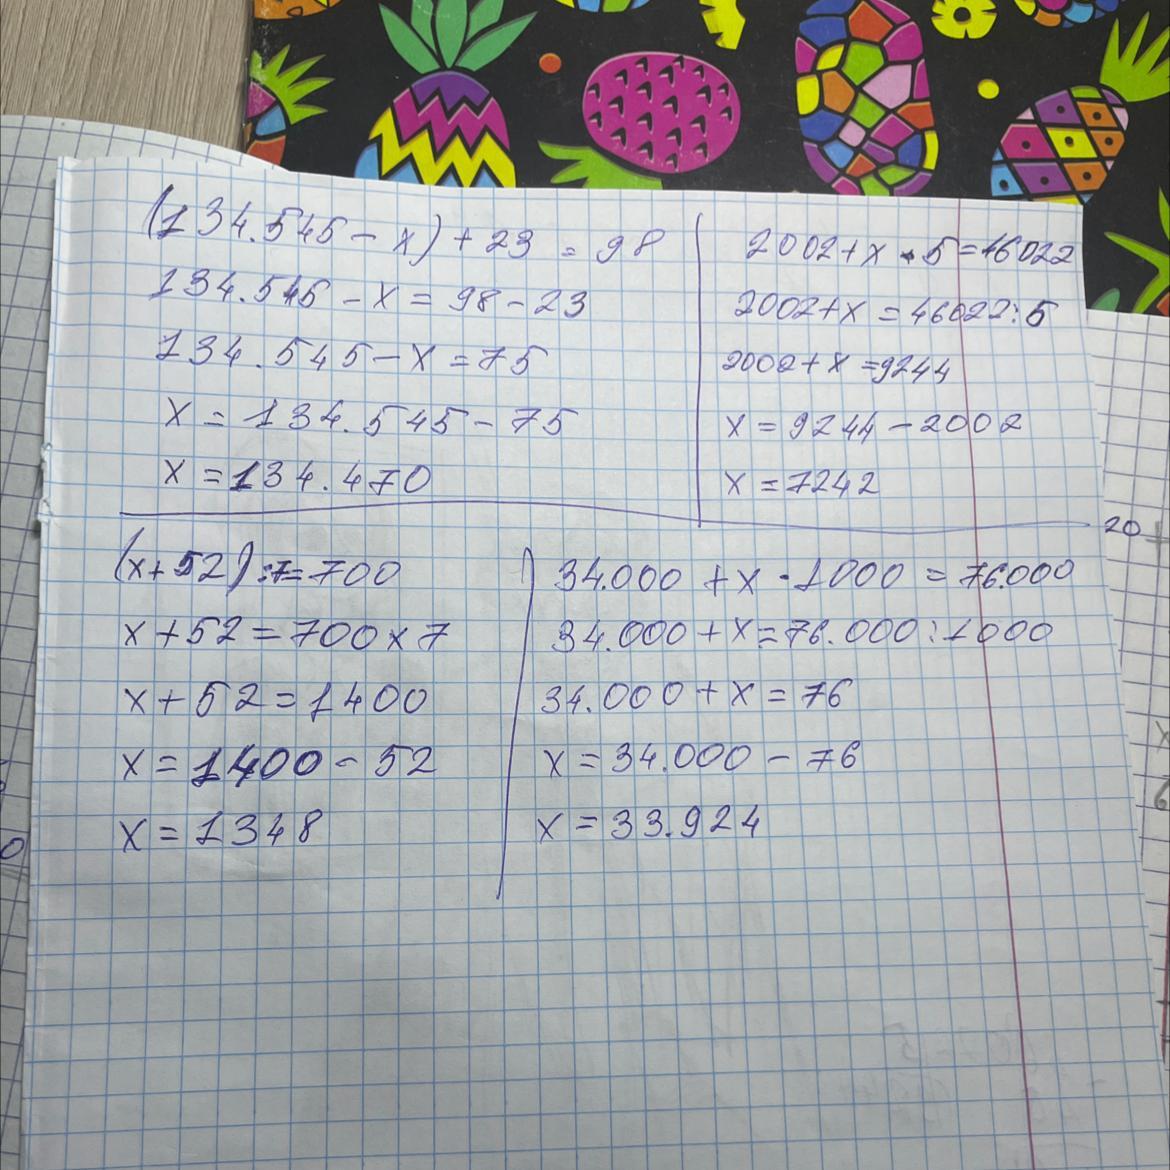 (134.545 - x) + 23 = 98
134.545 - x = 98 - 23
134.545 - x = 75
x = 134.545 - 75
x = 134.470
2002 + x · 5 = 46022
2002 + x = 46022 : 5
2002 + x = 9244
x = 9244 - 2002
x = 7242
20
(x + 52) : 7 = 700
x + 52 = 700 x 7
x + 52 = 1400
x = 1400 - 52
x = 1348
34.000 + x · 1000 = 76.000
34.000 + x = 76.000 : 1000
34.000 + x = 76
x = 34.000 - 76
x = 33.924